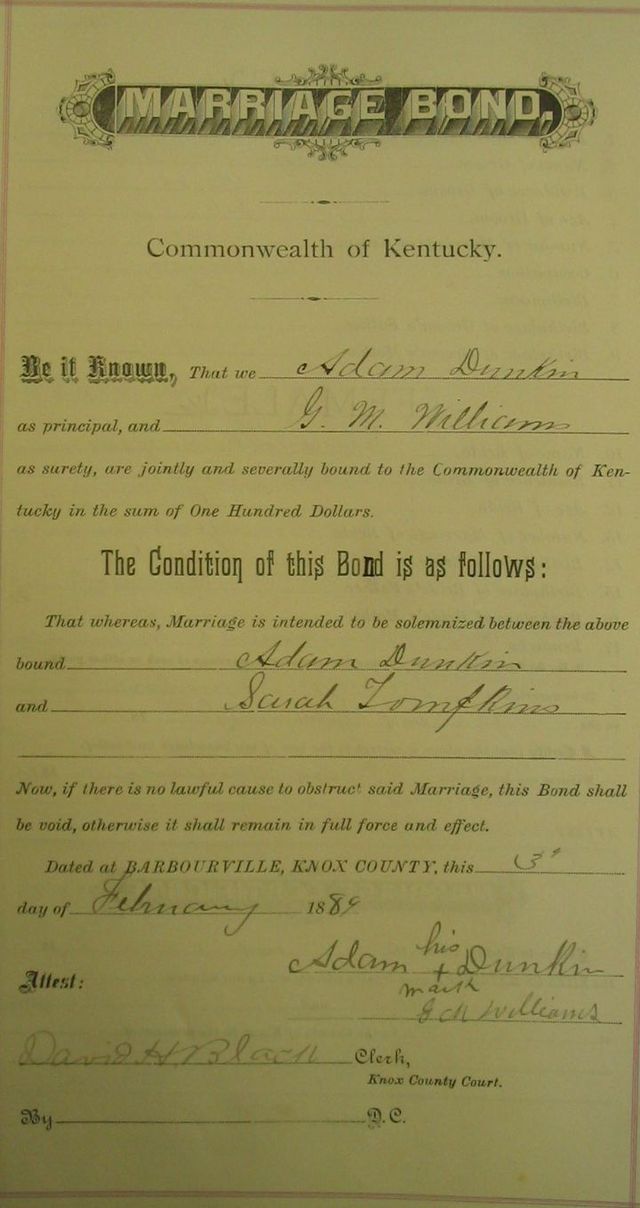 MARRIAGE BOND,
Commonwealth of Kentucky.
Be it Known, That we Adam Dunkin
as principal, and G. M. Williams
as surety, are jointly and severally bound to the Commonwealth of Ken-
tucky in the sum of One Hundred Dollars.
The Condition of this Bond is as follows:
That whereas, Marriage is intended to be solemnized between the above
bound Adam Dunkin
and Sarah Tompkins
Now, if there is no lawful cause to obstruct said Marriage, this Bond shall
be void, otherwise it shall remain in full force and effect.
Dated at BARBOURVILLE, KNOX COUNTY, this 3"
day of February 1889
Adam his + Dunkin
Attest: mark
G M Williams
David H Black Clerk,
Knox County Court.
By D.C.